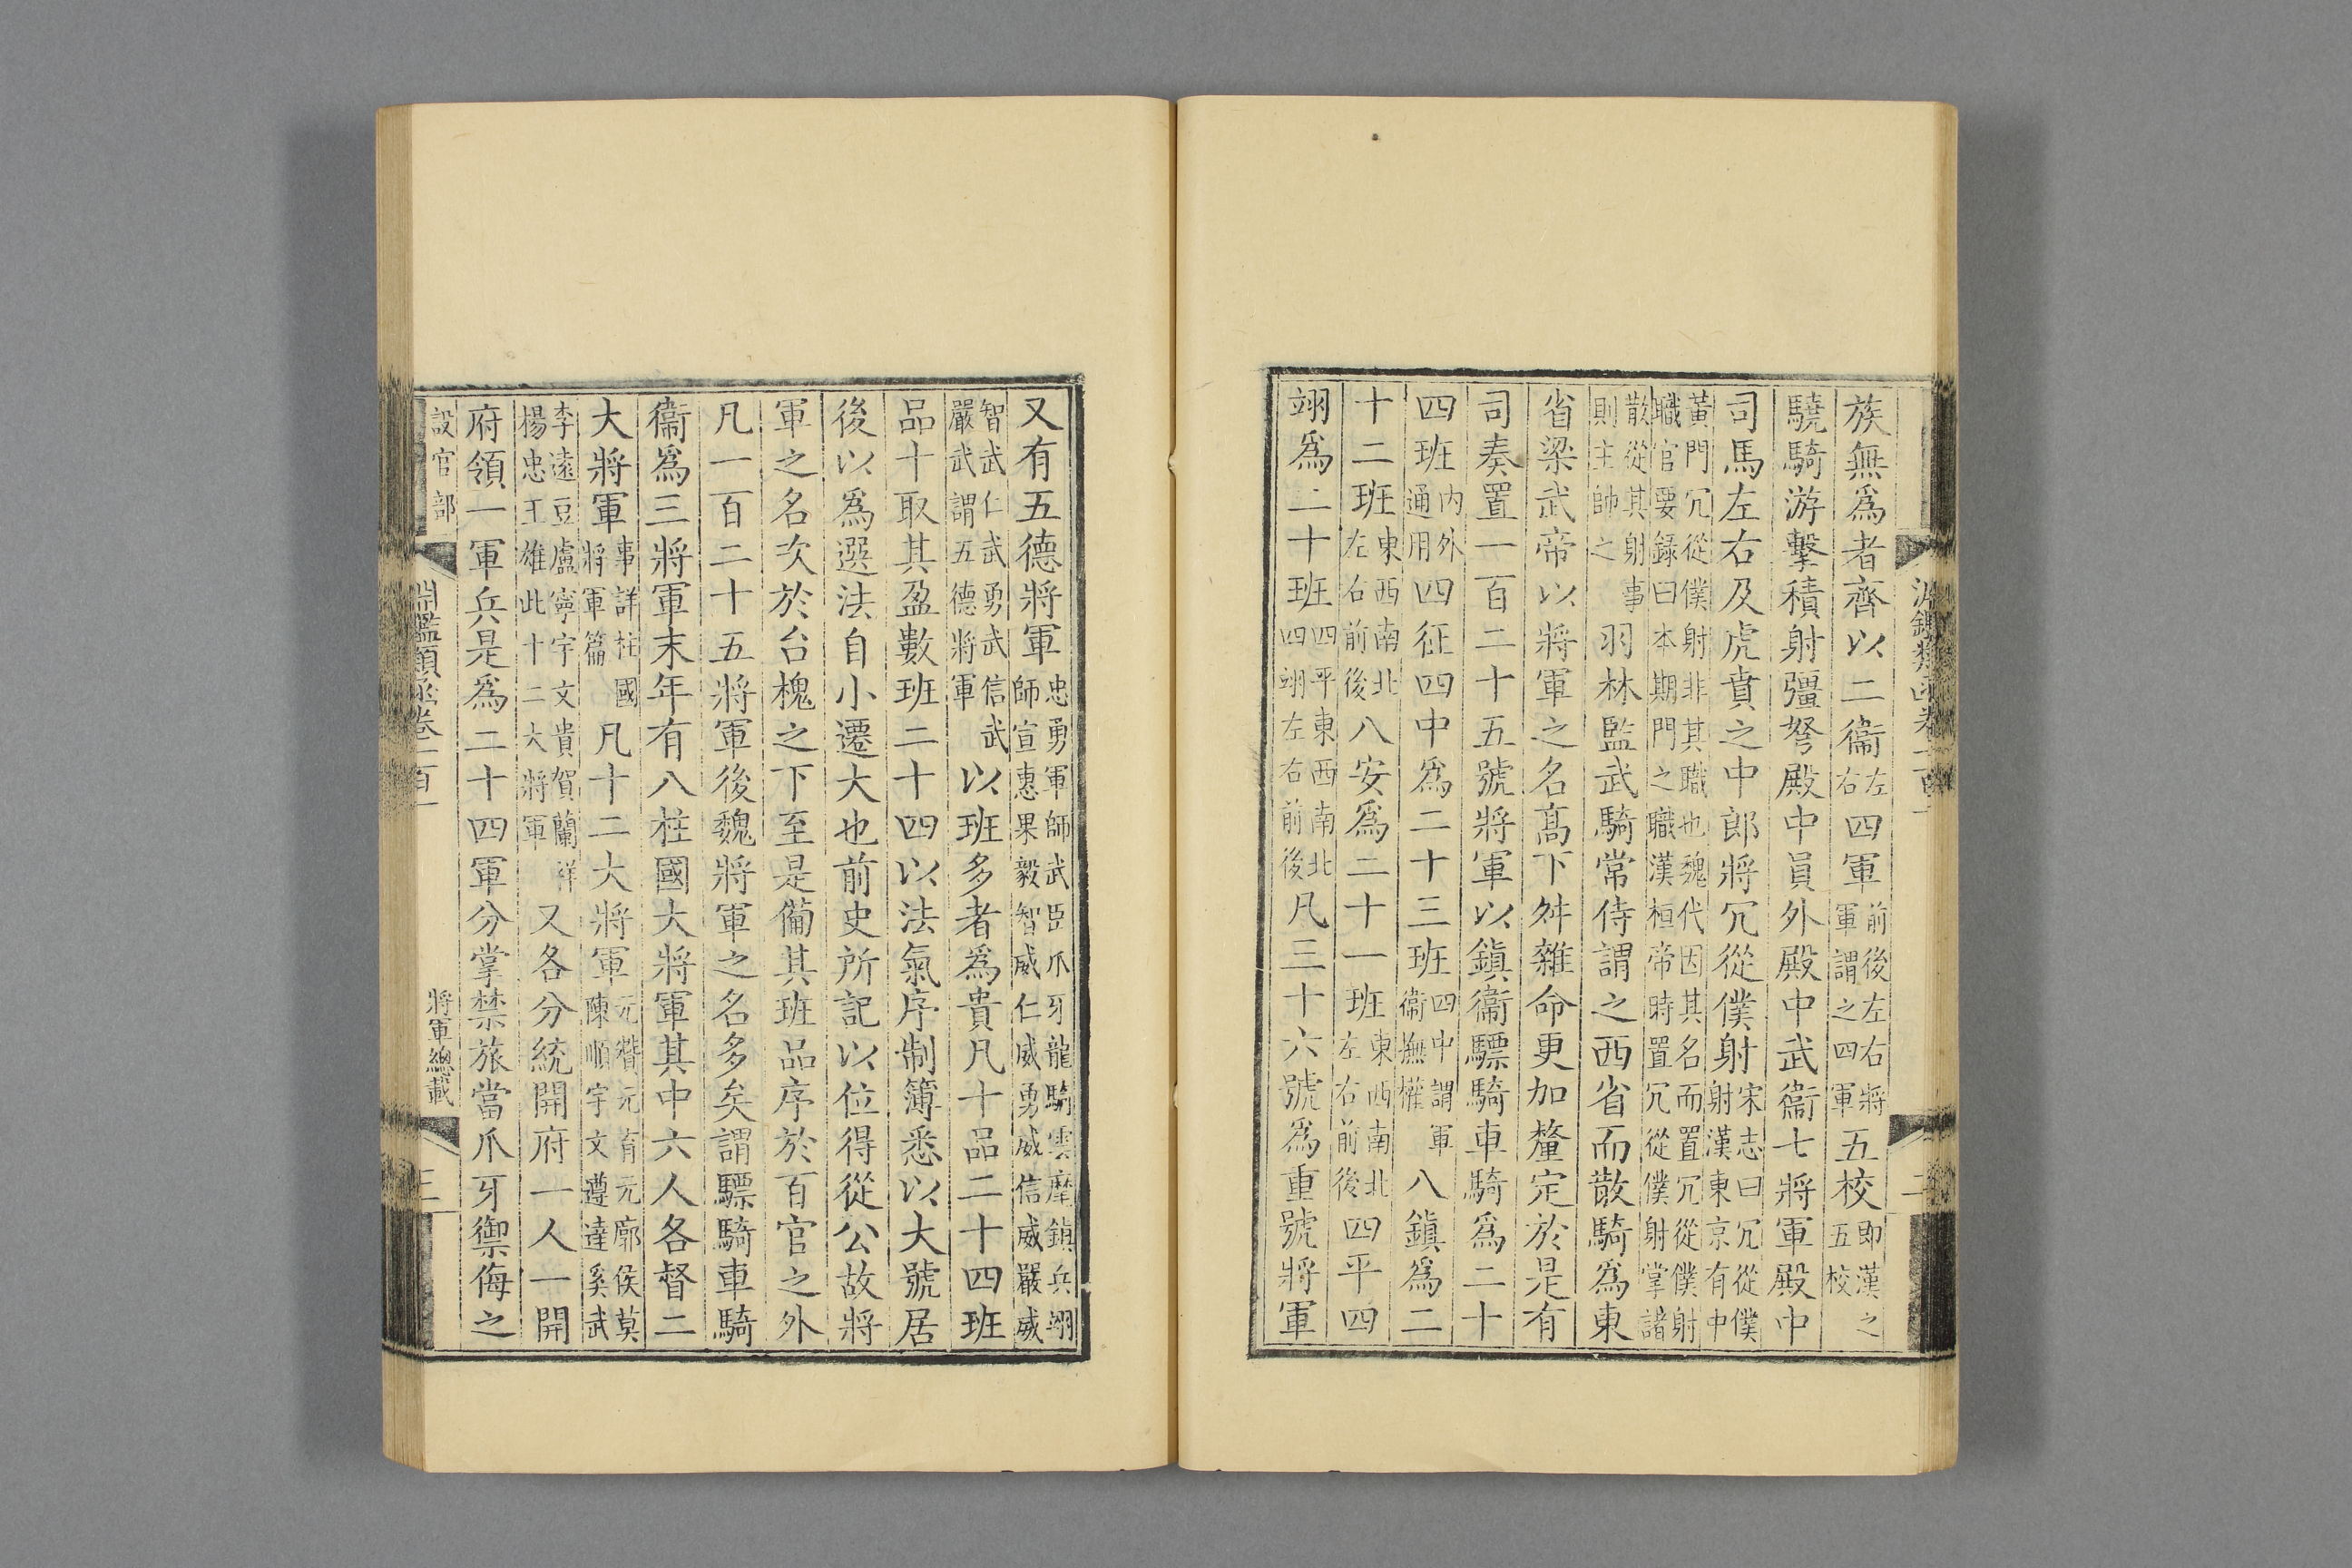 淵鑑類函卷一百一
二
族無爲者齊以二衞左右四軍前後左右將軍謂之四軍五校即漢之五校
驍騎游擊積射彊弩殿中員外殿中武衞七將軍殿中
司馬左右及虎賁之中郎將冗從僕射宋志曰冗從僕射漢東京有中
黃門冗從僕射非其職也魏代因其名而置冗從僕射職官要錄曰本期門之職漢桓帝時置冗從僕射掌諸
散從其射事則主帥之羽林監武騎常侍謂之西省而散騎爲東
省梁武帝以將軍之名髙下舛雜命更加釐定於是有
司奏置一百二十五號將軍以鎮衞驃騎車騎爲二十
四班内外通用四征四中爲二十三班四中謂軍衞撫權八鎮爲二
十二班東西南北左右前後八安爲二十一班東西南北左右前後四平四
翊爲二十班四平東西南北四翊左右前後凡三十六號爲重號將軍
又有五德將軍忠勇軍師武臣爪牙龍騎雲麾鎮兵翊師宣惠果毅智威仁威勇威信威嚴威
智武仁武勇武信武嚴武謂五德將軍以班多者爲貴凡十品二十四班
品十取其盈數班二十四以法氣序制簿悉以大號居
後以爲選法自小遷大也前史所記以位得從公故將
軍之名次於台槐之下至是備其班品序於百官之外
凡一百二十五將軍後魏將軍之名多矣謂驃騎車騎
衞爲三將軍末年有八柱國大將軍其中六人各督二
大將軍事詳柱國將軍篇凡十二大將軍元贊元育元廓侯莫陳順宇文遵達奚武
李遠豆盧寧宇文貴賀蘭祥楊忠王雄此十二大將軍又各分統開府一人一開
府領一軍兵是爲二十四軍分掌禁旅當爪牙禦侮之
設官部 將軍總載
淵鑑類函卷一百一
三